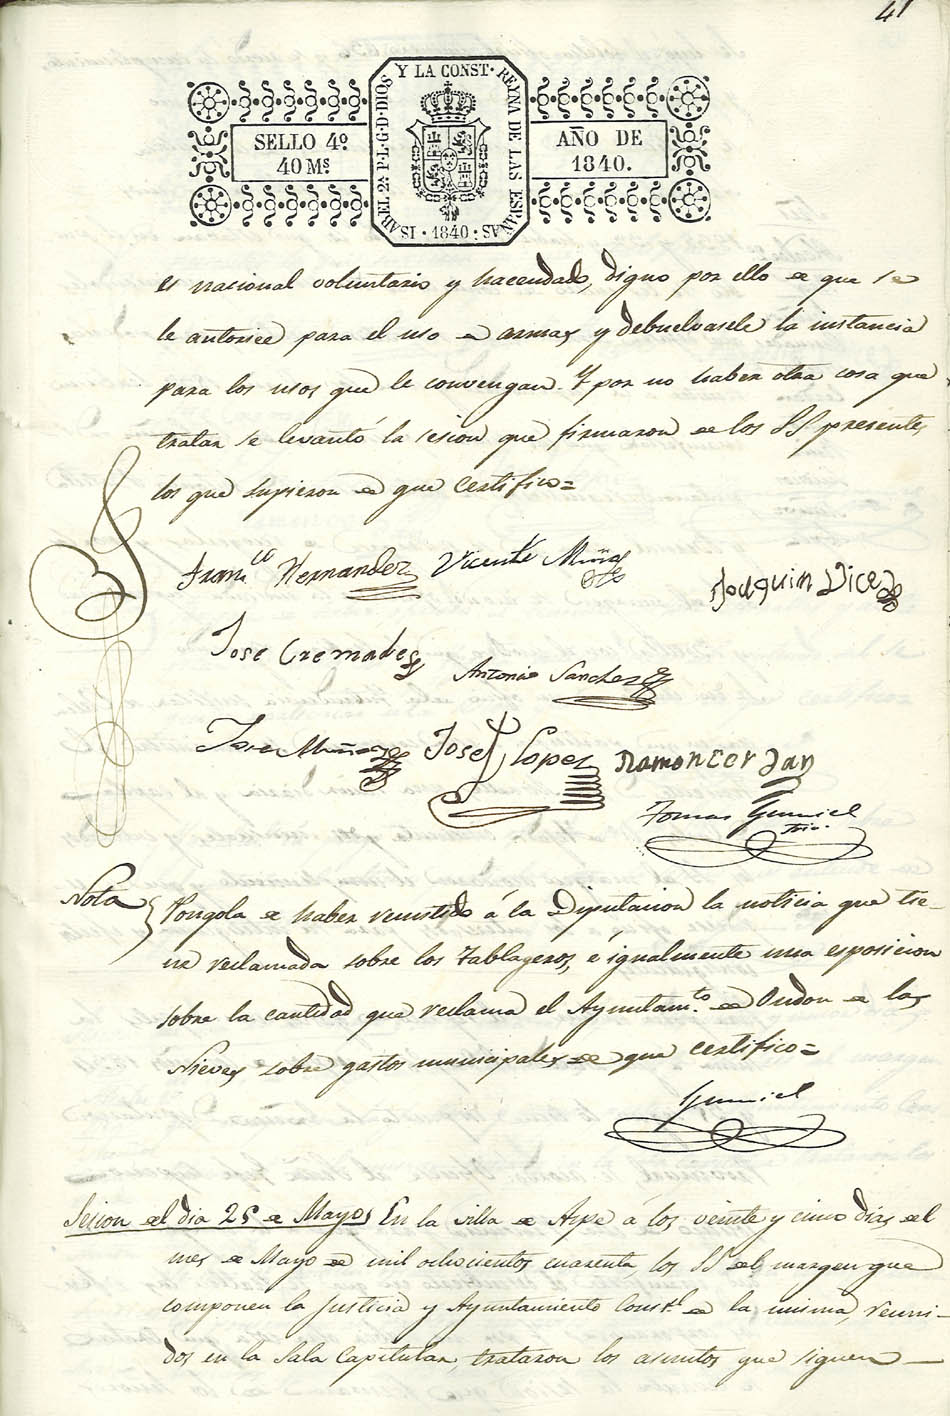 41
SELLO 4º
40 Mˢ.
ISABEL 2ª P·L·G·D·DIOS Y LA CONST· REYNA DE LAS ESPAÑAS · 1840 ·
AÑO DE
1840.
es nacional voluntario y hacendado, digno por ello de que se
le autorice para el uso de armas y debuelvasele la instancia
para los usos que le convengan. Y por no haber otra cosa que
tratar se levantó la sesion que firmaron de los SS presentes
los que supieron de que certifico=
Franᶜᵒ Hernandez Vicente Muñoz
Joaquin Vicedo
Jose Cremades
Antonio Sanchez
Jose Muñoz Jose Lopez Ramon Cerdan
Tomas Gumiel
Srio.
Nota Pongola de haber remitido á la Diputacion la noticia que tie-
ne reclamada sobre los Tablageros, é igualmente una esposicion
sobre la cantidad que reclama el Ayuntamᵗᵒ. de Ondon de las
Nieves sobre gastos municipales de que certifico=
Gumiel
Sesion del dia 25 de Mayo En la villa de Aspe á los veinte y cinco dias del
mes de Mayo de mil ochocientos cuarenta, los SS del margen que
componen la Justicia y Ayuntamiento Constˡ de la misma, reuni-
dos en la Sala Capitular, trataron los asuntos que siguen